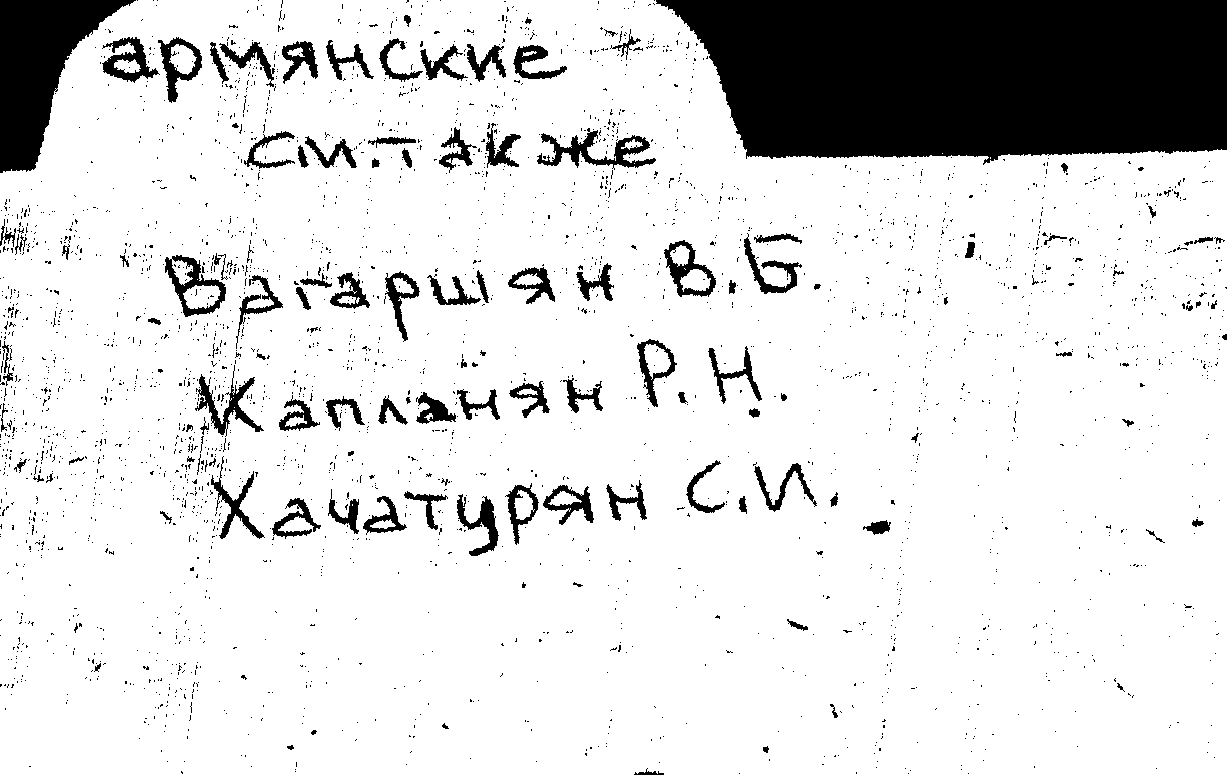 армянские
см. также
Вагаршян В.Б.
Капланян Р.Н.
Хачатурян С.И.